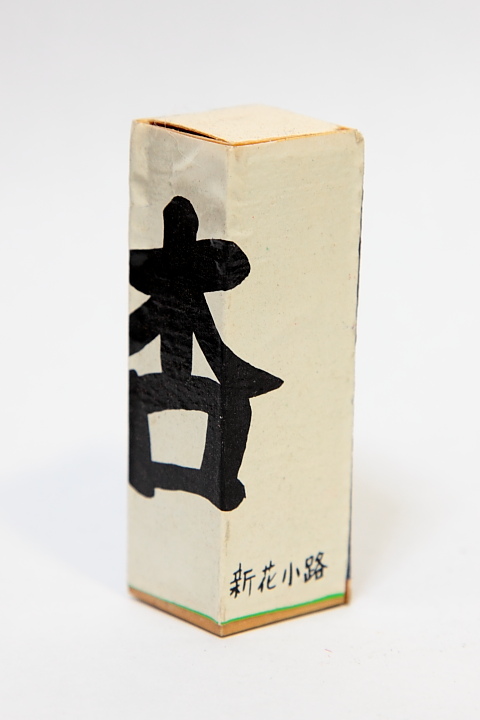 杏
新花小路